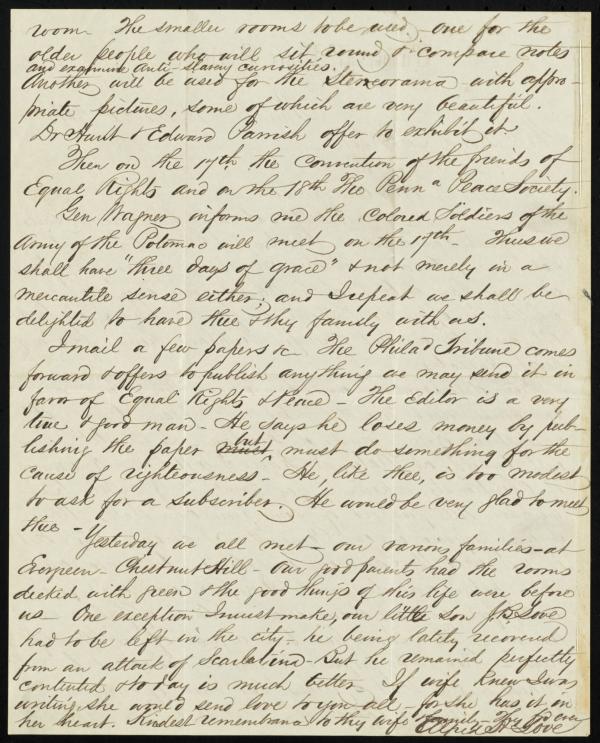 room. The smaller rooms to be used - one for the
older people who will sit round & compare notes
and examine Anti-Slavery curiosities.
Another will be used for the Stereorama with appro-
priate pictures, some of which are very beautiful.
Dr Hunt & Edward Parrish offer to exhibit it
Then on the 17th, the convention of the friends of
Equal Rights and on the 18th The Penna Peace Society.
Gen Wagner informs me the Colored Soldiers of the
Army of the Potomac will meet on the 17th - Thus we
shall have "three days of grace" & not merely in a
mercantile sense either; and I repeat we shall be
delighted to have thee & thy family with us.
I mail a few papers &c The Philad Tribune comes
forward & offers to publish anything we may send it in
favor of Equal Rights & Peace - The Editor is a very
true & good man - He says he loses money by pub-
lishing the paper must but must do something for the
cause of righteousness - He, like thee, is too modest
to ask for a subscriber. He would be very glad to meet
thee -
Yesterday we all met - our various families - at
Evergreen - Chestnut Hill - Our good parents had the rooms
decked with green & the good things of this life were before
us - One exception I must make, our little son J B Love
had to be left in the city - he being lately recovered
from an attack of Scarlatina - But he remained perfectly
contented & today is much better If wife knew I was
writing she would send love to you all - for she has it in
her heart. Kindest remembrance to thy wife & family - Thy fd ever
Alfred H Love